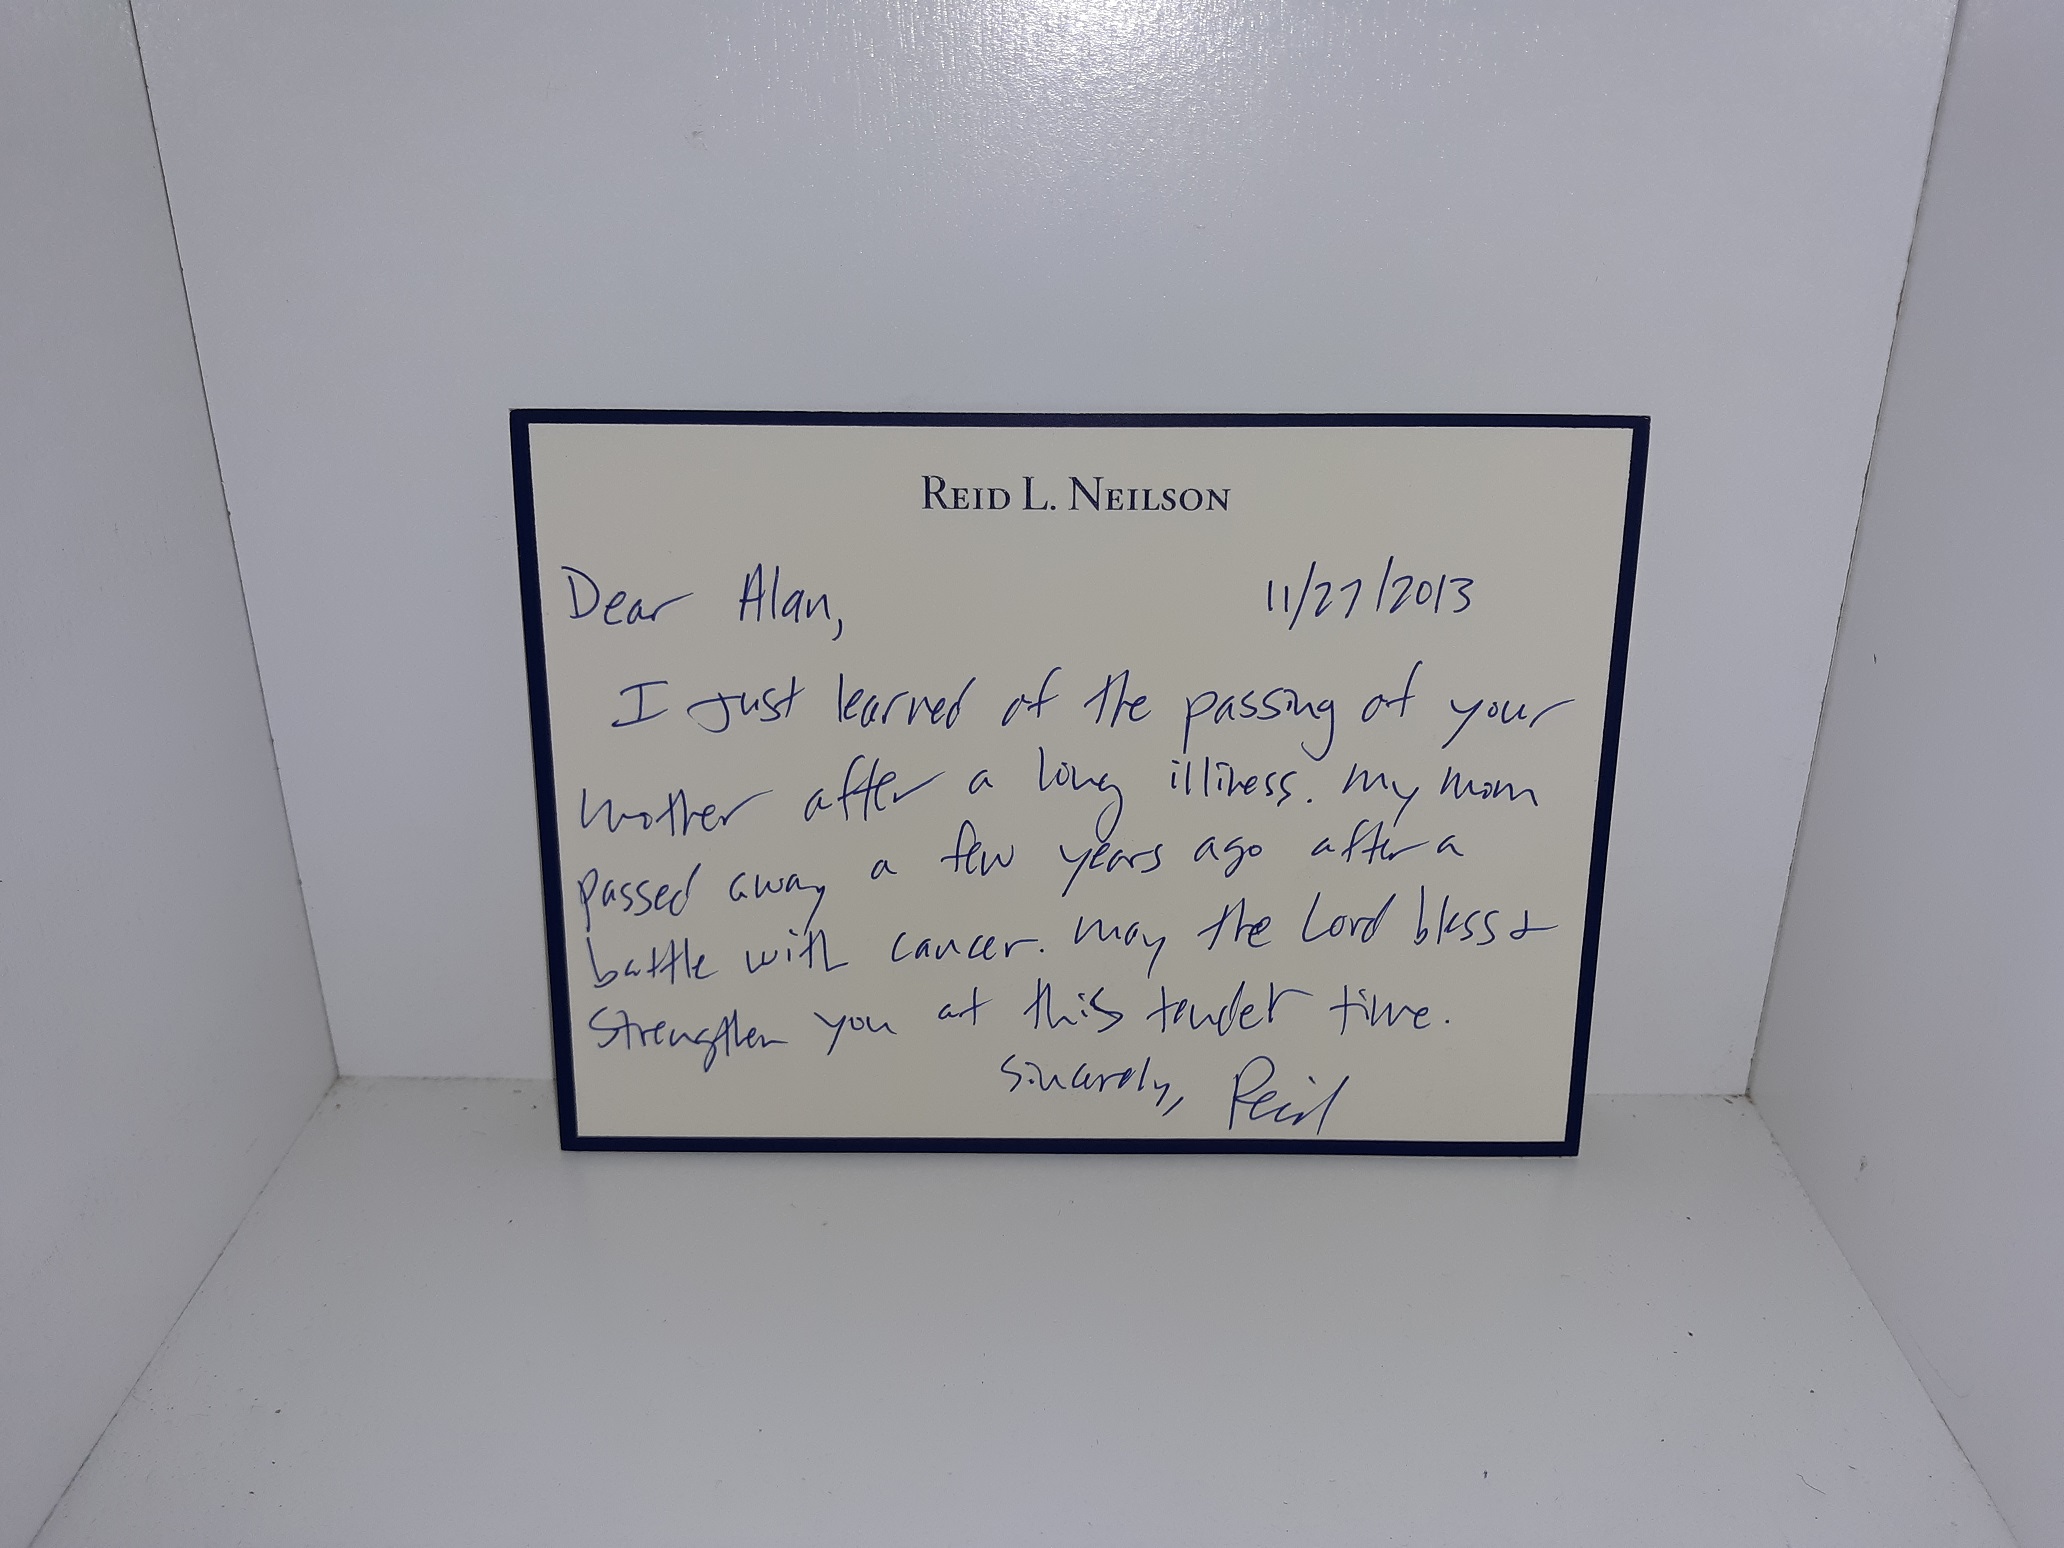 REID L. NEILSON
Dear Alan, 11/27/2013
I just learned of the passing of your
mother after a long illness. My mom
passed away a few years ago after a
battle with cancer. May the Lord bless &
strengthen you at this tender time.
Sincerely, Reid